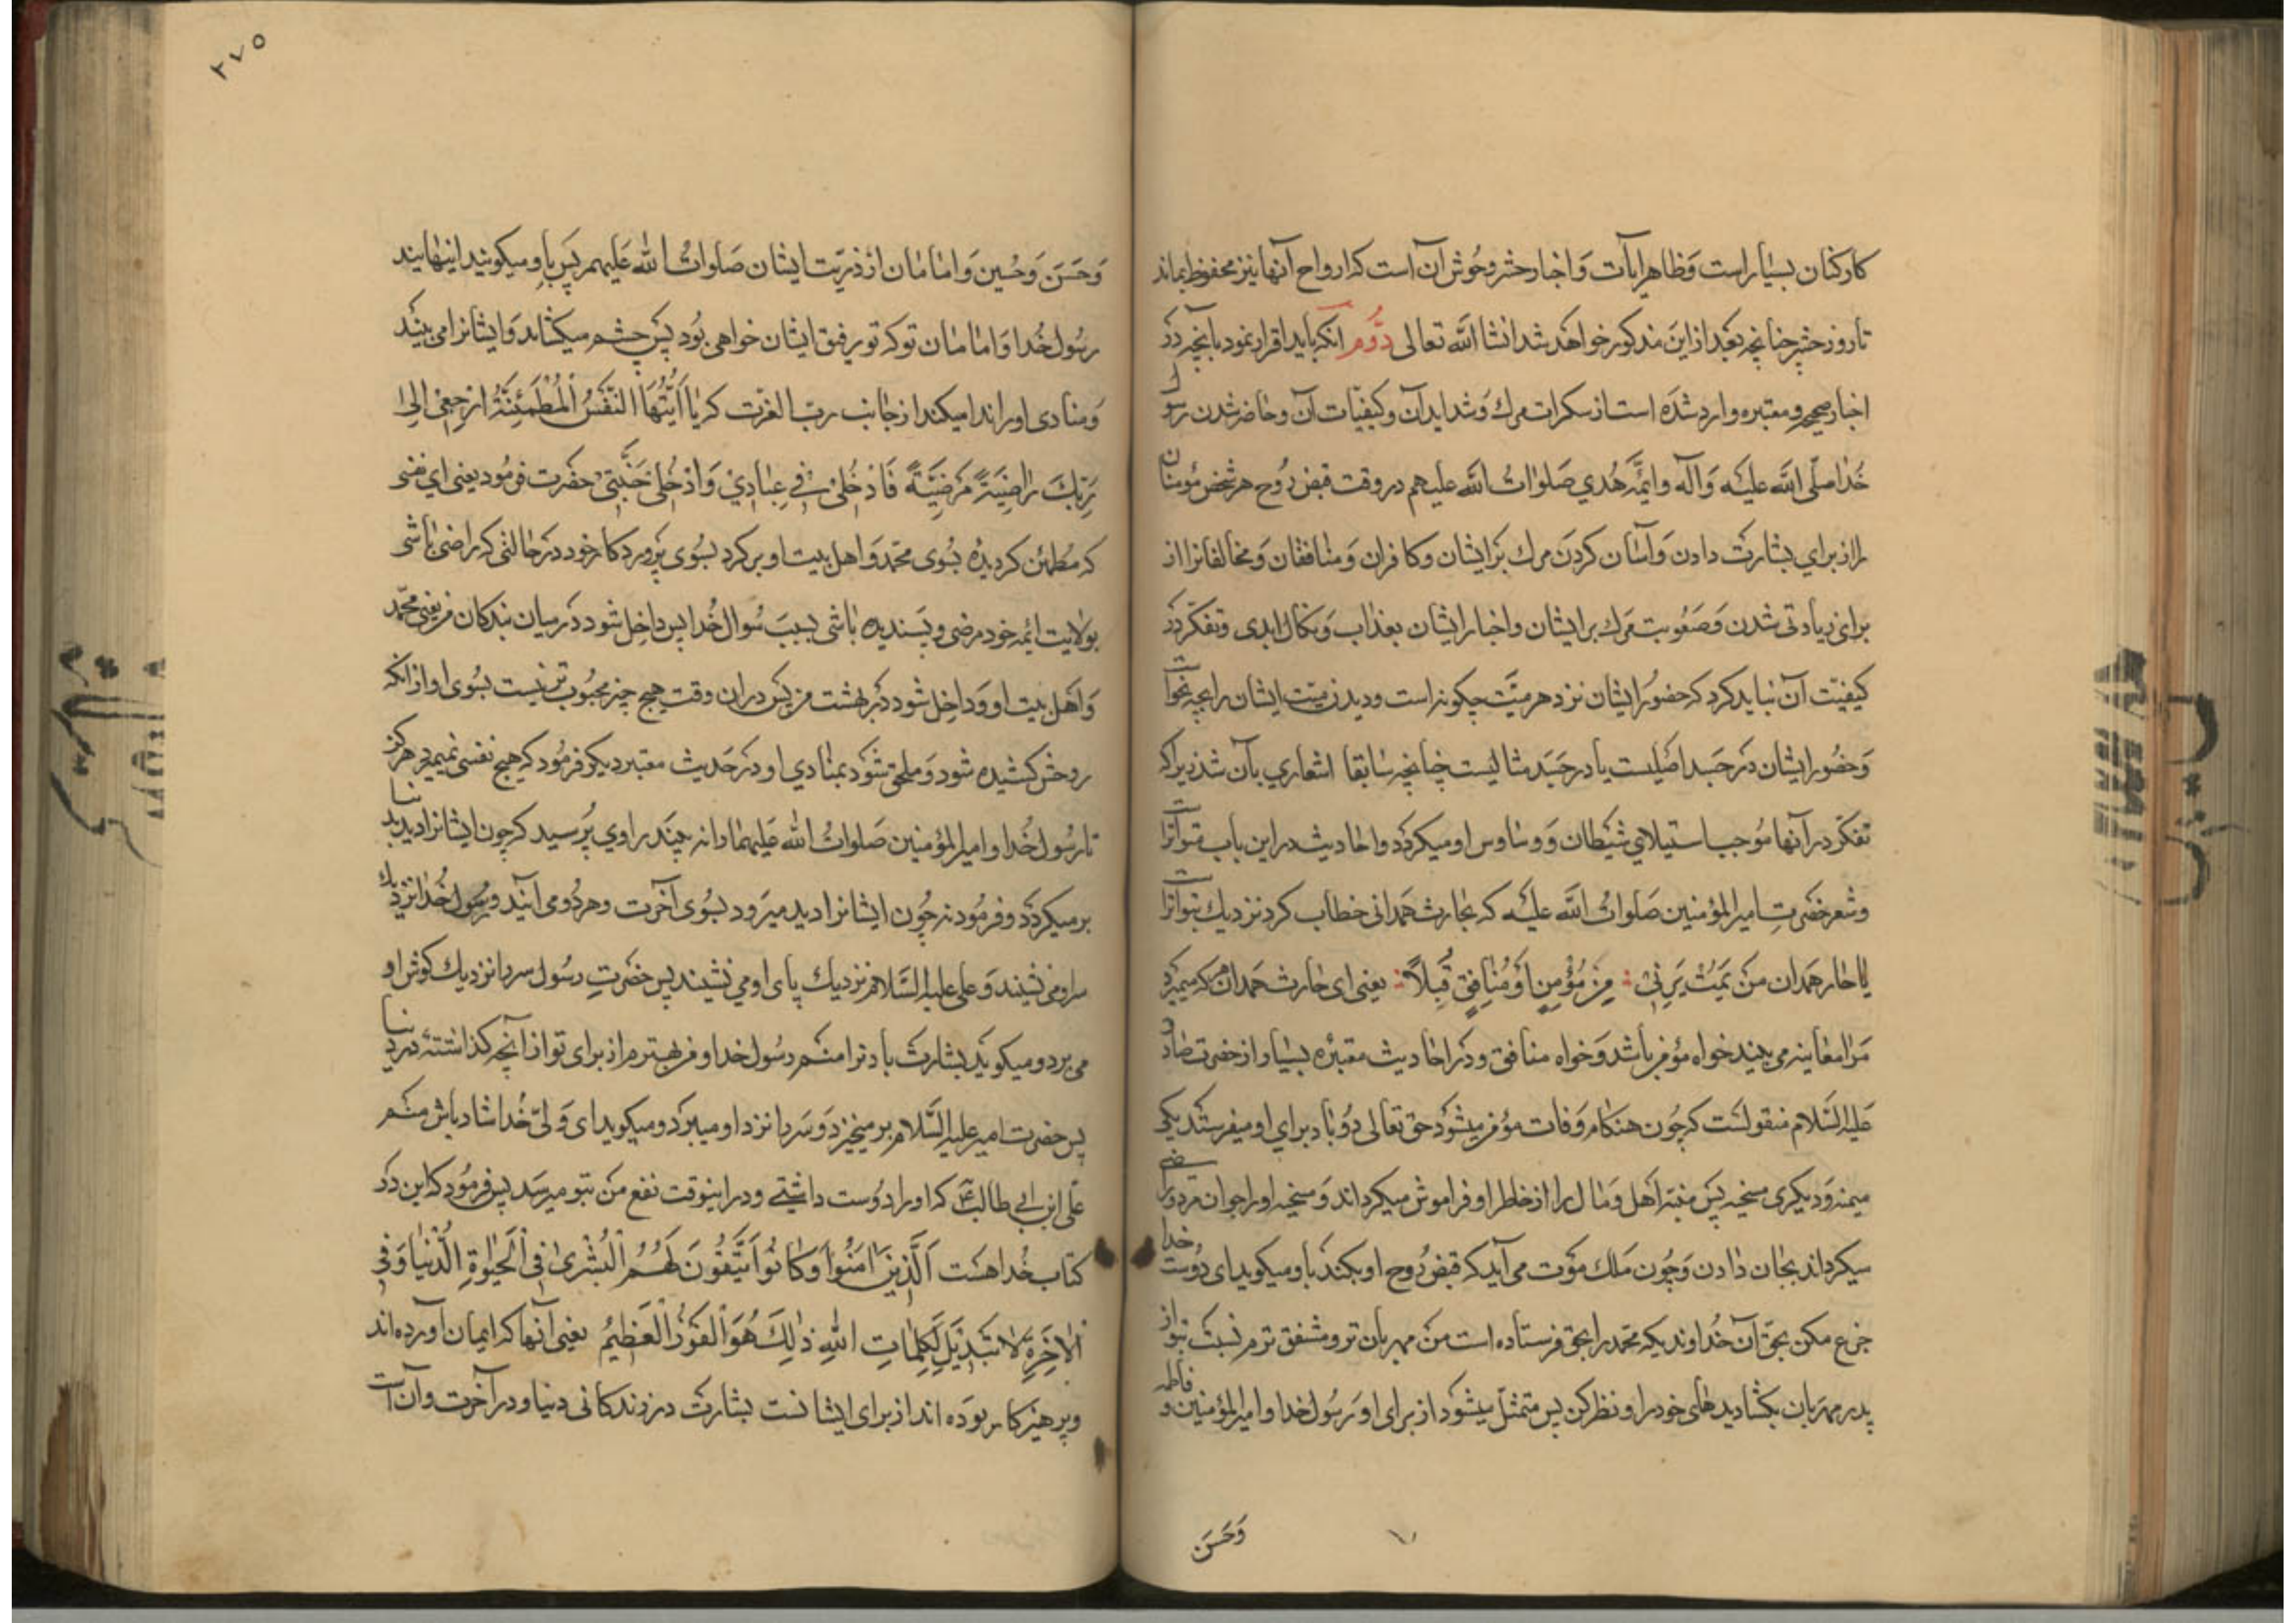 کارکنان بسیار است وَظاهر ایات وَ اخبار حشر وحُوش آن است که ارواح آنها نیز محفوظ بماند
تا روز حشر چنانچه بَعد از این مذکور خواهَد شد انشا اللّه تعالی دوُّم انکه باید اقرار نمود بآنچه دَر
اخبار صحیحه و معتبره وارد شدَه است از سکرات مرك وَ شداید آن و کیفیّات آن و حاضر شدن رسول
خُدا صلّی اللّه علیَه وَآله وایمّه هُدي صَلوٰاتُ اللّه علیهم در وقت قبض رُوح هر شخص مؤمنان
را از برایِ بشارَت دادن وَ آسٰان کردَن مرك بَر ایشان و کافران وَ منٰافقان وَ مخالفانرا از
برای زیادتی شدن وَ صَعُوبت مَرك بر ایشان و اخبار ایشان بعذاب وَ نکال ابدی و تفکّر دَر
کیفیّت آن نباید کرد که حضُور ایشان نزد هر میّت چکونه است و دیدن میّت ایشان را بچه نحو است
وَ حضُور ایشان دَر جَسَد اصَیلست یا در جَسَد مثالیست چنانچه سٰابقا اشعاري بآن شد زیرا که
تفکّر در آنها مُوجب استیلاي شیَطان وَ وسٰاوس او میکردَد و احٰادیث در این باب متواتر است
وشعر حَضَرتِ امیر المؤمنین صَلواتُ اللّه علیَه که بحٰارث هَمدانی خطاب کرد نزدیك بتواتر است
یٰا حٰار هَمدان مَن یَمُتْ یَرَنِی ؛ مِن مُؤْمِنٍ اَوْ مُنٰافِقٍ قُبُلاً ؛ یعنی ای حٰارث هَمدان هر که میمیرد
مَرا معٰاینه می بیند خواه مؤمن باشد وَ خواه منٰافق و دَر احٰادیث معتبَره بسیٰار از حضرت صٰادق
عَلیه السَّلام منقولَست که چُون هنکٰام وَفات مؤمن میشوَد حق تعالی دُو باد براي او میفرستد یکی
میمنه وَ دیکری مسخیه پَس منیَه اَهل وَ مٰال را از خٰاطر او فراموش میکرداند وَ مسخیه او را جوان مرد و راضی
میکرداند بجٰان دٰادن وَ چُون مَلك موَت می آید که قبض رُوح او بکند باو میکوید ای دُوست خدا
جزع مکن بحَقِ آن خُداوندیکه محمّد را بحق فرستاده است مَن مهربان تر و مشفق ترم نسبت بتو از
پدر مهربان بکشا دیدهٰای خود را و نظر کن پس متمثّل میشوَد از برای او رَسُول خدا و امیر المؤمنین و فاطمه
وَحَسَن
۲۷۵
وَحَسَن وَ حُسین وَ امٰامٰان از ذریّت ایشان صَلوٰاتُ اللّه عَلیهم پَس باو میکویند اینهایند
رسُول خُدا وَ امٰامٰان تو که تو رفیق ایشان خواهی بوُد پَس چشم میکشاید وَ ایشانرا می بیند
وَ منٰادی او را ندا میکند از جٰانب ربّ العزت که یٰا اَیَّتُهَا النَّفْسُ اَلْمُطْمَئِنَّةُ ارْجِعِیٓ اِلیٰ
رَبِّكَ رٰاضِیَةً مَرْضِیَّةً فَادْخُلِیْ فِیْ عِبٰادِيْ وَادْخُلِی جَنَّتِی حضَرت فرمُود یعنی اي نفسی
که مُطمئن کردیدَه بسُوی محمّد وَ اهل بیت او بر کرد بسُوی پَروردکار خود دَر حٰالتی که رٰاضی بٰاشی
بولایت ائمه خود مرضی و پَسندیده بٰاشی بسبب سُوال خُدا پس داخِل شو دَر میان بندکان من یعنی محمّد
وَ اهَل بیت او و دَاخِل شو دَر بهَشت من پَس در ان وقت هیچ چیز محبُوب تر نیست بسُوی او از انکه
روحش کشیده شود وَ ملحق شوَد بمنٰادی او و در حَدیث معتبر دیکر فرمُود که هیچ نفسی نمیمیرد هرکز
تا رسُول خُدا و امیر المؤمنین صَلواتُ اللّه عَلیهما را نه بیند راوي پُرسید که چون ایشانرا دید بدنیا
بر میکردَد و فرمُود نه چُون ایشانرا دید میرَود بسُوی آخرت و هر دُو می آیند و رسُول خُدا نزدیك
سر او می نشیند وَ علی علیه السَّلام نزدیك پای او می نشیند پس حضَرتِ رسُول سر را نزدیك کوش او
می برد و میکوید بشارَت باد ترا منَم رسُول خدا و من بهترم از برای تو از آنچه کذاشتهٔ در دنیا
پس حضَرت امیر علیه السَّلام بر میخیزد وَ سَر را نزد او میبَرد و میکوید ای وَلیّ خُدا شاد باش منَم
علّی ابن ابی طالبؑ که او را دُوست داشتے و در اینوقت نفع من بتو میرسَد پس فرمُود که این دَر
کتاب خُدا هسَت اَلَّذِینَ اٰمَنُوْا وَ کٰانُوْا یَتَّقُونَ لَهُمُ الْبُشْریٰ فِی اَلْحَیوٰةِ الدُّنْیٰا وَفِی
اْلاٰخِرَةِ لاٰ تَبْدِیْلَ لِکَلِمٰاتِ اللّٰهِ ذٰلِكَ هُوَ اْلفَوْزُ اْلعَظِیْمُ یعنی آنها که ایمان آورده اند
و پرهیزکار بودَه اند از برای ایشانست بشارَت در زندکانی دنیا و در آخرت و آن است